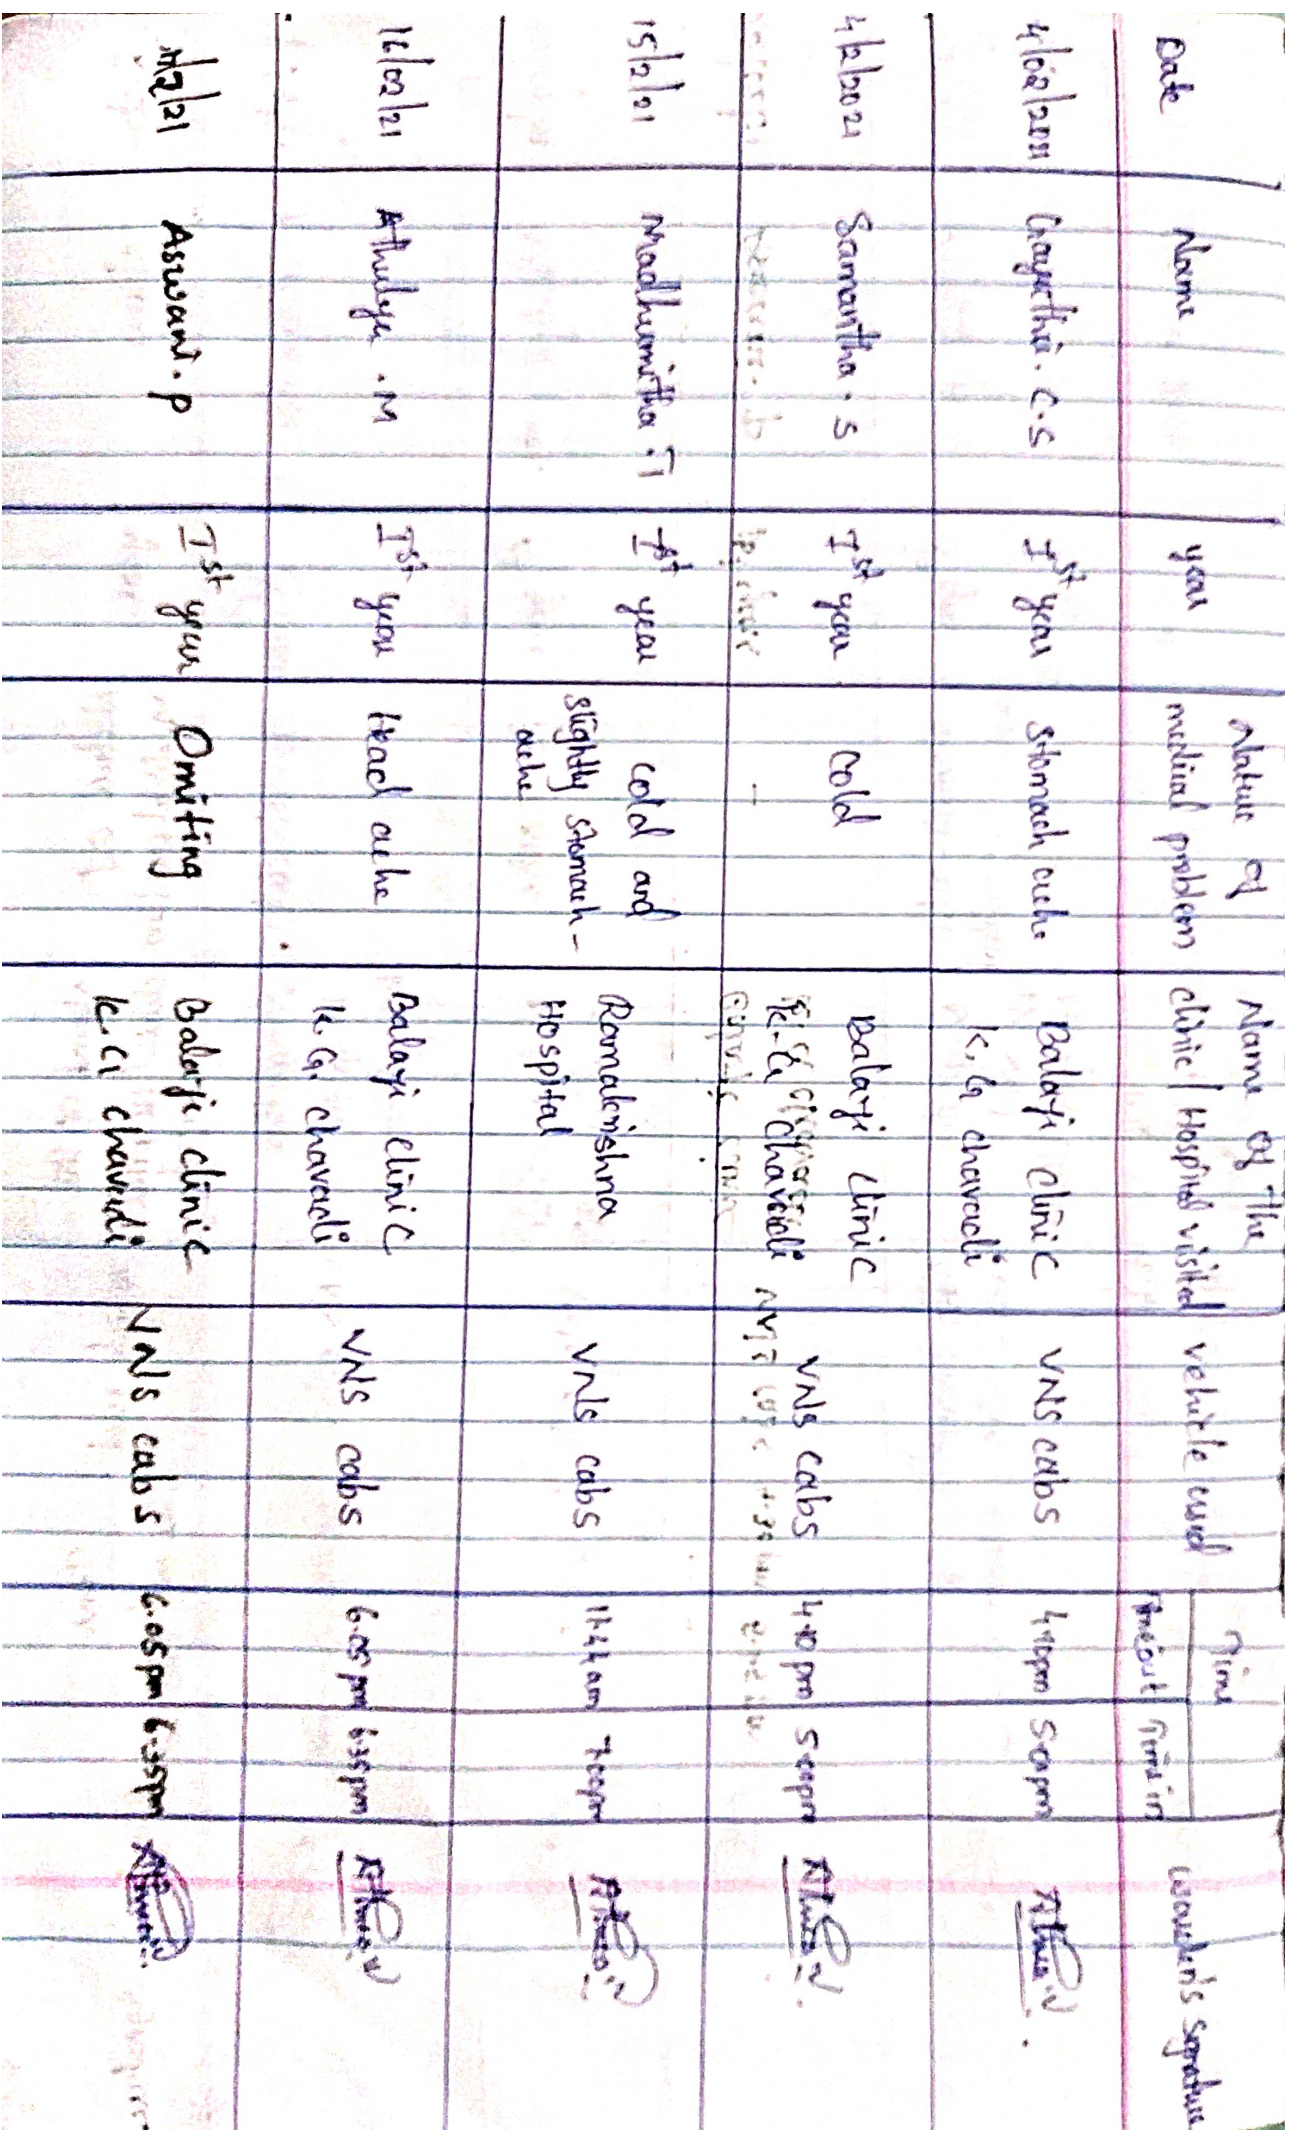 Date Name year Nature of medical problem Name of the clinic / Hospital visited vehicle used Time Timeout Time in warden's signature
4/02/2021 Gayathri. C.S Ist year stomach ache Balaji clinic K.G chavadi VNS cabs 4.10pm 5.01pm
4/2/2021 Samantha . S Ist year cold Balaji clinic K.G chavadi VNS cabs 4.10 pm 5.00pm
15/2/21 Madhumitha .T Ist year cold and slightly stomach- ache Ramakrishna Hospital VNS cabs 11.44 am 7.00pm
16/02/21 Athulya . M Ist year Head ache Balaji clinic K.G. chavadi VNS cabs 6.05 pm 6.35pm
/2/21 Aswani. P Ist year Omiting Balaji clinic K.G chavadi VNS cabs 6.05pm 6.35pm